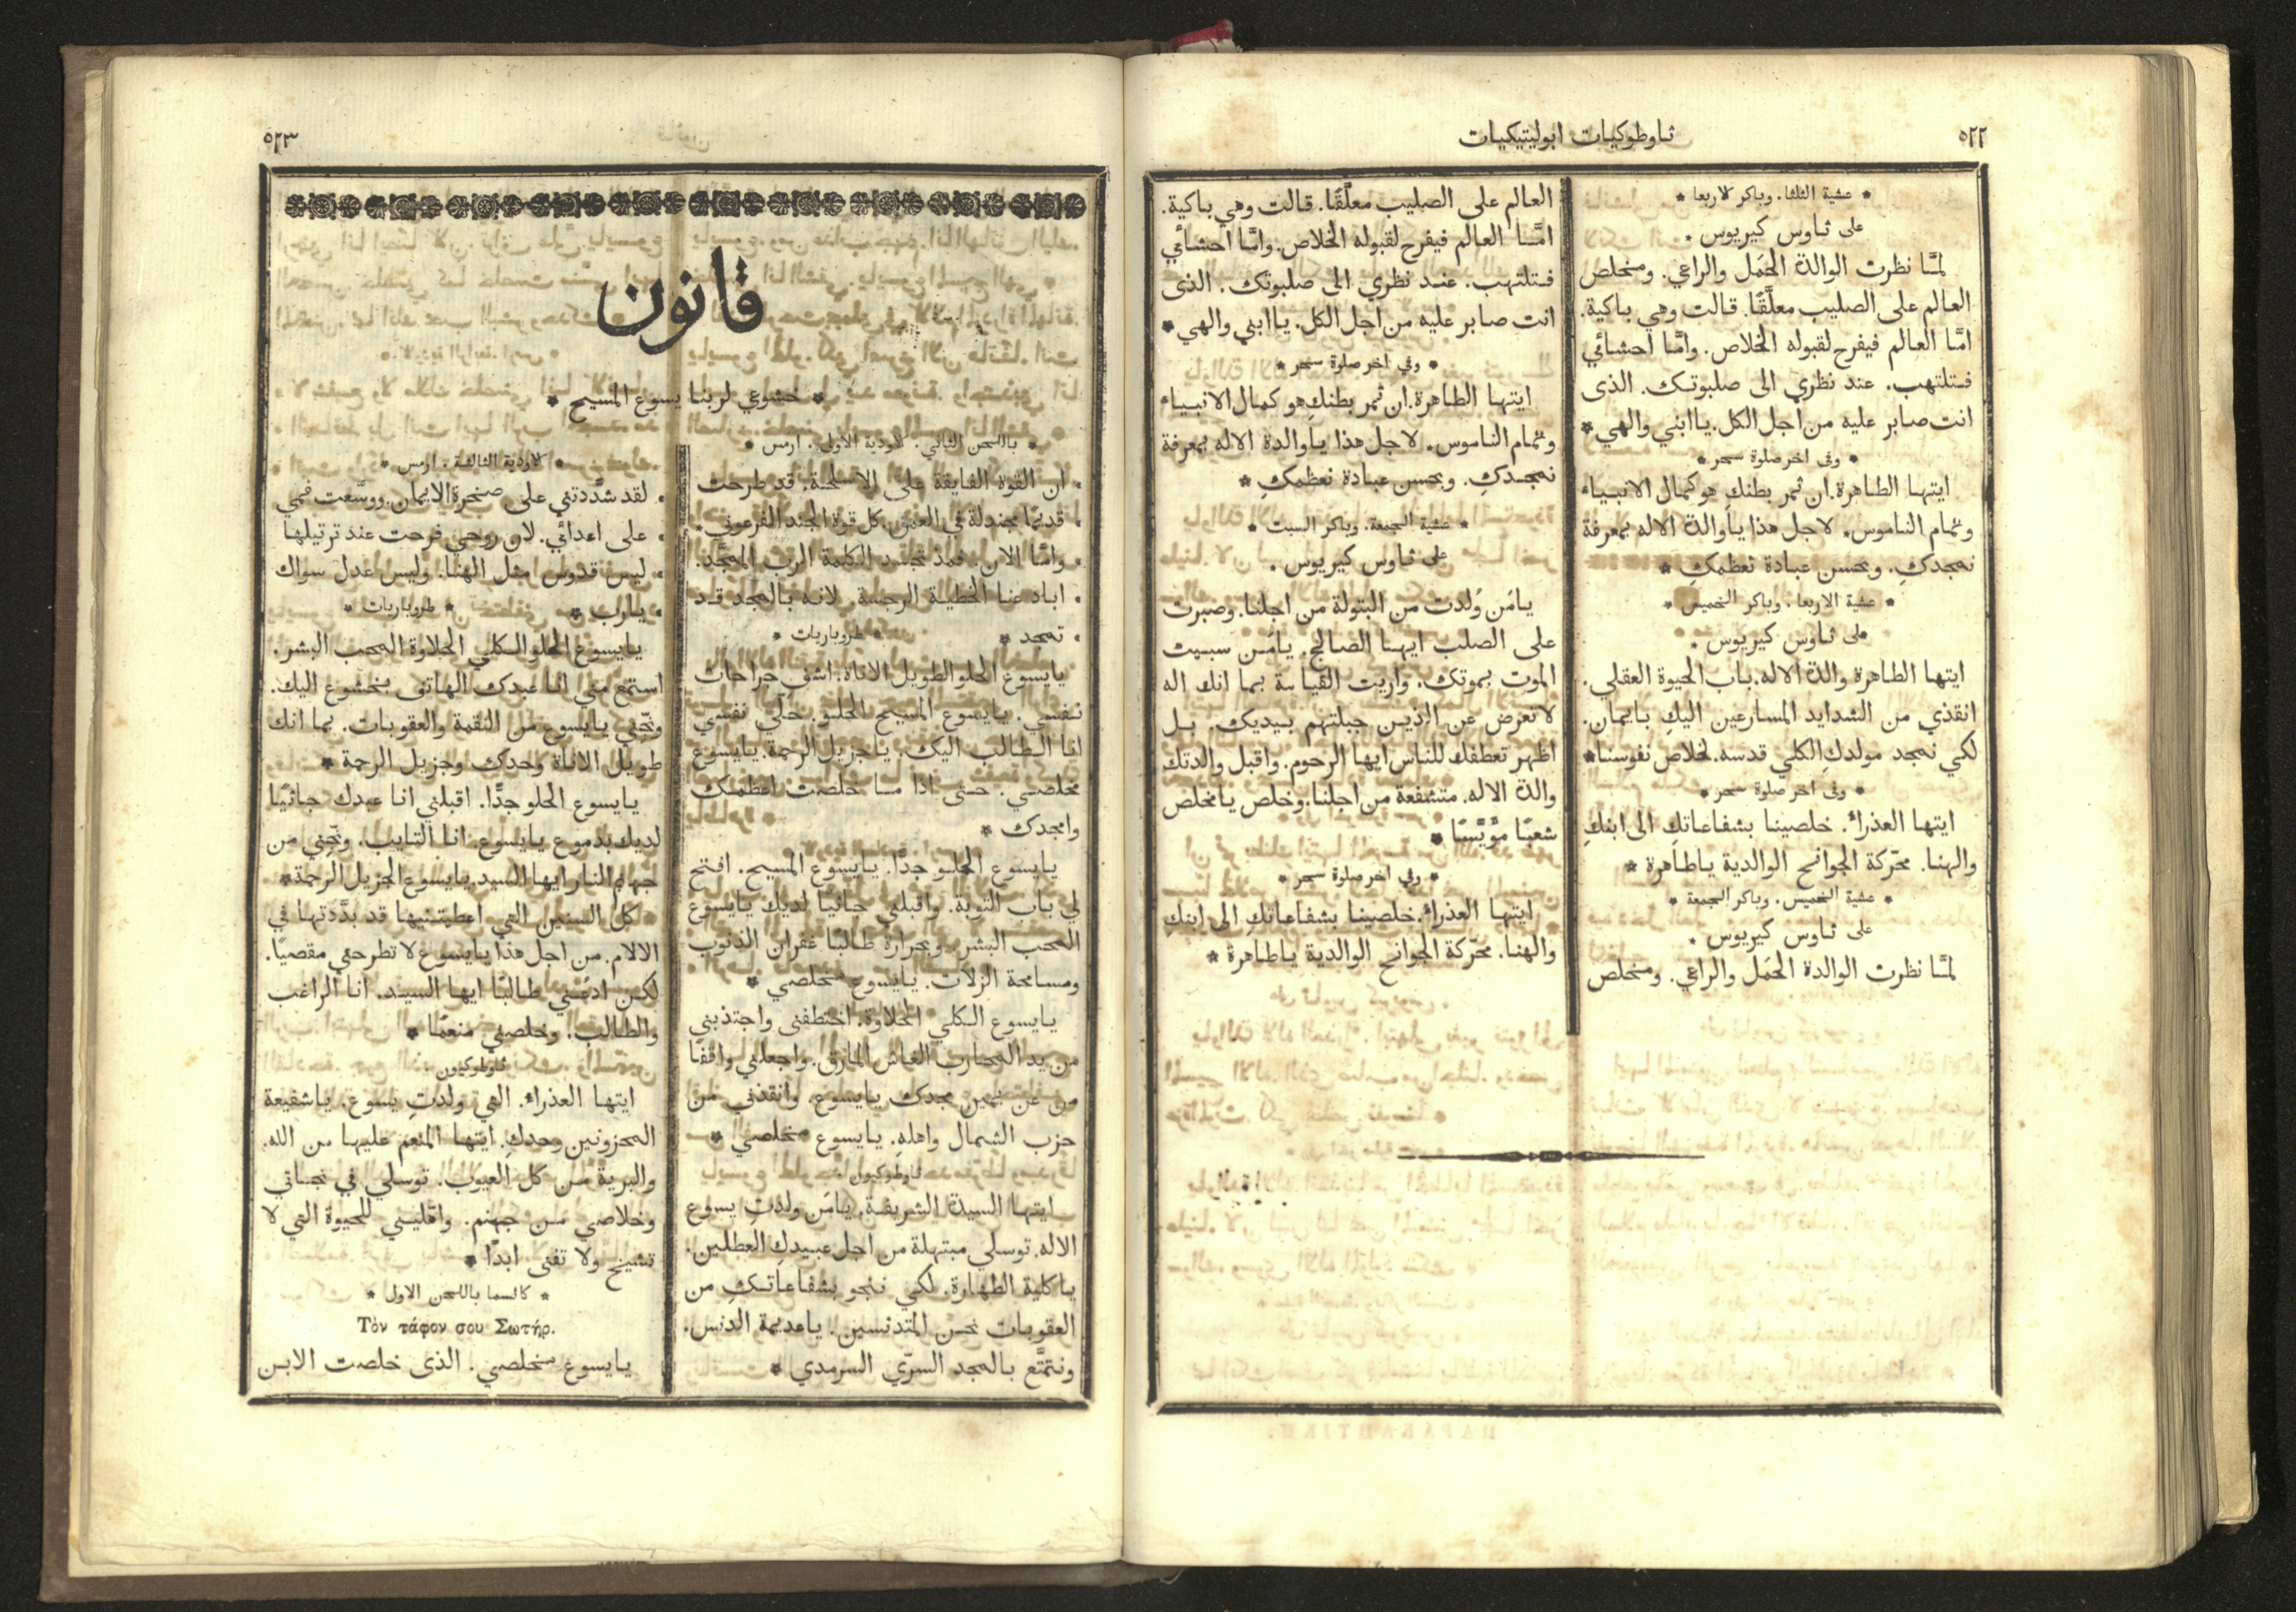 ٥٢٢
ثاوطوكيات ابوليتيكيات
* عشية الثلثا. وباكر الاربعا *
على ثاوس كيريوس .
لمَّا نظرت الوالدة الحَمَل والراعي. ومخلص
العالم على الصليب معلَّقًا. قالت وهي باكية.
امَّا العالم فيفرح لقبوله الخلاص. وامَّا احشائي
فتلتهب. عند نظري الى صلبوتك. الذى
انت صابر عليه من اجل الكل. ياابني والهي *
* وفى اخر صلوة سحر *
ايتها الطاهرة. ان ثمر بطنكِ هو كمال الانبياء
وتمام الناموس. لاجل هذا ياوالدة الاله بمعرفة
نمجدكِ. وبحسن عبادة نعظمكِ *
* عشية الاربعا. وباكر الخميس *
على ثاوس كيريوس .
ايتها الطاهرة والدة الاله. باب الحيوة العقلي.
انقذي من الشدايد المسارعين اليكِ بايمان.
لكي نمجد مولدكِ الكلي قدسه. لخلاص نفوسنا *
* وفى اخر صلوة سحر *
ايتها العذراء. خلصينا بشفاعاتكِ الى ابنكِ
والهنا. محرّكة الجوانح الوالدية ياطاهرة *
* عشية الخميس. وباكر الجمعة *
على ثاوس كيريوس .
لمَّا نظرت الوالدة الحَمَل والراعي. ومخلص
العالم على الصليب معلَّقًا. قالت وهي باكية.
امَّا العالم فيفرح لقبوله الخلاص. وامَّا احشائي
فتلتهب. عند نظري الى صلبوتك. الذى
انت صابر عليه من اجل الكل. ياابني والهي *
* وفي اخر صلوة سحر *
ايتها الطاهرة. ان ثمر بطنكِ هو كمال الانبياء
وتمام الناموس. لاجل هذا ياوالدة الاله بمعرفة
نمجدكِ. وبحسن عبادة نعظمكِ *
* عشية الجمعة. وباكر السبت *
على ثاوس كيريوس .
يامَن وُلدت من البتولة من اجلنا. وصبرت
على الصلب ايها الصالح. يامَن سبيت
الموت بموتك. واريت القيامة بما انك اله
لا تعرض عن الذين جبلتهم بيديك. بل
اظهر تعطفك للناس ايها الرحوم. واقبل والدتك
والدة الاله. متشفعة من اجلنا. وخلص يامخلص
شعبًا مؤيَّسًا *
* وفي اخر صلوة سحر *
ايتها العذراء. خلصينا بشفاعاتكِ الى ابنكِ
والهنا. محرّكة الجوانح الوالدية ياطاهرة *
٥٢٣
قانون
* خشوعي لربنا يسوع المسيح *
* باللحن الثاني. الاودية الاولى. ارمس *
. ان القوة الفايقة على الاسلحة. قد طرحت
. قديمًا مجندلة في العمق. كل قوة الجند الفرعوني.
. وامَّا الان. فمذ تجسد الكلمة الرب الممجَّد.
. اباد عنا الخطية الرجسة. لانه بالمجد قد
. تمجد * * طروباريات *
يايسوع الحلو الطويل الاناة. اشفِ جراحات
نفسي. يايسوع المسيح الحلو. حلّي نفسي
انا الطالب اليك. ياجزيل الرحمة. يايسوع
مخلصي. حتى اذا ما خلصت اعظمك
وامجدك *
يايسوع الحلو جدًّا. يايسوع المسيح. افتح
لي باب التوبة. واقبلني جاثيًا لديك يايسوع
المحب البشر. وبحرارة طالبًا غفران الذنوب
ومسامحة الزلات. يايسوع مخلصي *
يايسوع الكلي الحلاوة. اختطفنى واجتذبني
من يد المحارب الغاش المارق. واجعلني واقفًا
من عن يمين مجدك يايسوع. وانقذني من
حزب الشمال واهلهِ. يايسوع مخلصي *
ثاوطوكيون .
ايتها السيدة الشريفة. يامَن ولدتِ يسوع
الاله. توسلي مبتهلة من اجل عبيدكِ العطلين.
ياكلية الطهارة. لكي ننجو بشفاعاتكِ من
العقوبات نحن المتدنسين. ياعديمة الدنس.
ونتمتَّع بالمجد السرّي السرمدي *
* الاودية الثالثة. ارمس *
. لقد شدَّدتني على صخرة الايمان. ووسَّعت فمي
. على اعدائي. لان روحي فرحت عند ترتيلها
. ليس قدوس مثل الهنا. وليس عدل سواك
. يارب * * طروباريات *
يايسوع الحلو الكلي الحلاوة المحب البشر.
استمع مني انا عبدك الهاتف بخشوع اليك.
ونجّني يايسوع من النقمة والعقوبات. بما انك
طويل الاناة وحدك وجزيل الرحمة *
يايسوع الحلو جدًّا. اقبلني انا عبدك جاثيًا
لديك بدموع يايسوع. انا التايب. ونجّني من
جهنم النار ايها السيد. يايسوع الجزيل الرحمة *
كل السنين التي اعطيتنيها قد بدَّدتها في
الالام. من اجل هذا يايسوع لا تطرحني مقصيًا.
لكن ادعُني طالبًا ايها السيد. انا الراغب
والطالب. وخلصني منعمًا *
ثاوطوكيون .
ايتها العذراء. التي ولدتِ يسوع. ياشفيعة
المحزونين وحدكِ. ايتها المنعم عليها من الله.
والبرية من كل العيوب. توسلي في نجاتي
وخلاصي من جهنم. واقّليني للحيوة التي لا
تشيخ ولا تفنى ابدًا *
* كاتسما باللحن الاول *
Τὸν τάφον σου Σωτήρ.
يايسوع مخلصي. الذى خلصت الابن